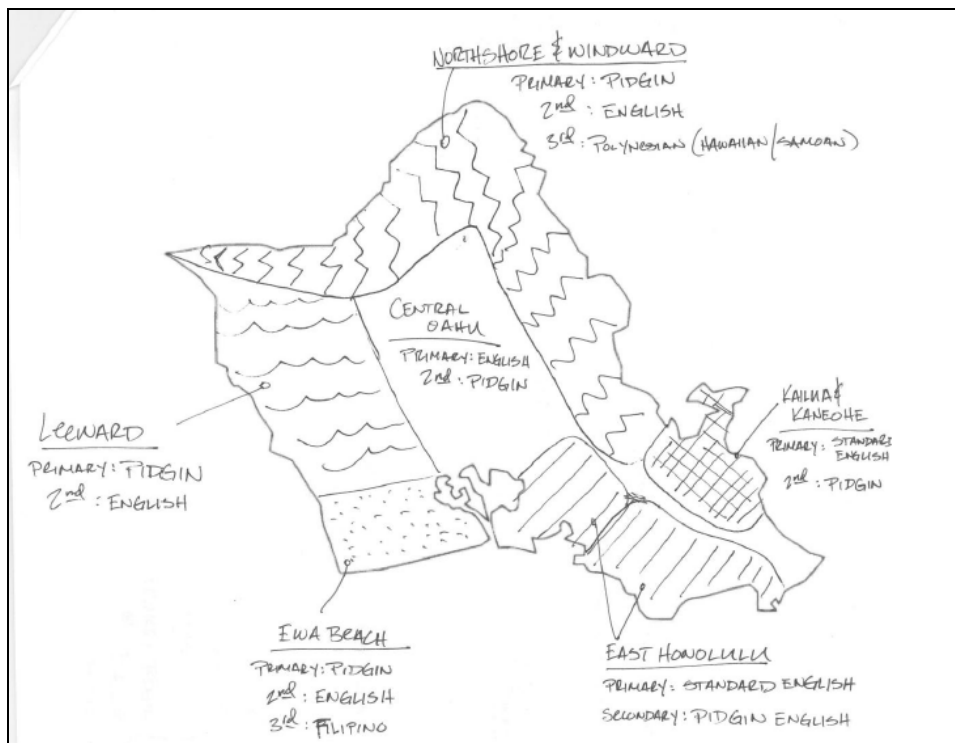 NORTHSHORE & WINDWARD
PRIMARY: PIDGIN
2nd: ENGLISH
3rd: POLYNESIAN (HAWAIIAN/SAMOAN)
CENTRAL
OAHU
PRIMARY: ENGLISH
2nd: PIDGIN
KAILUA &
KANEOHE
PRIMARY: STANDARD
ENGLISH
2nd: PIDGIN
LEEWARD
PRIMARY: PIDGIN
2nd: ENGLISH
EWA BEACH
PRIMARY: PIDGIN
2nd: ENGLISH
3rd: FILIPINO
EAST HONOLULU
PRIMARY: STANDARD ENGLISH
SECONDARY: PIDGIN ENGLISH